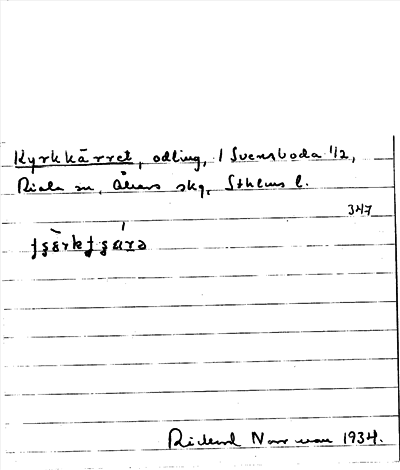 Kyrkkärret, odling, 1 Svensboda 1/2,
Riala sn, Åkers skg, Sthlms l.
347
Rickard Norrman 1934.